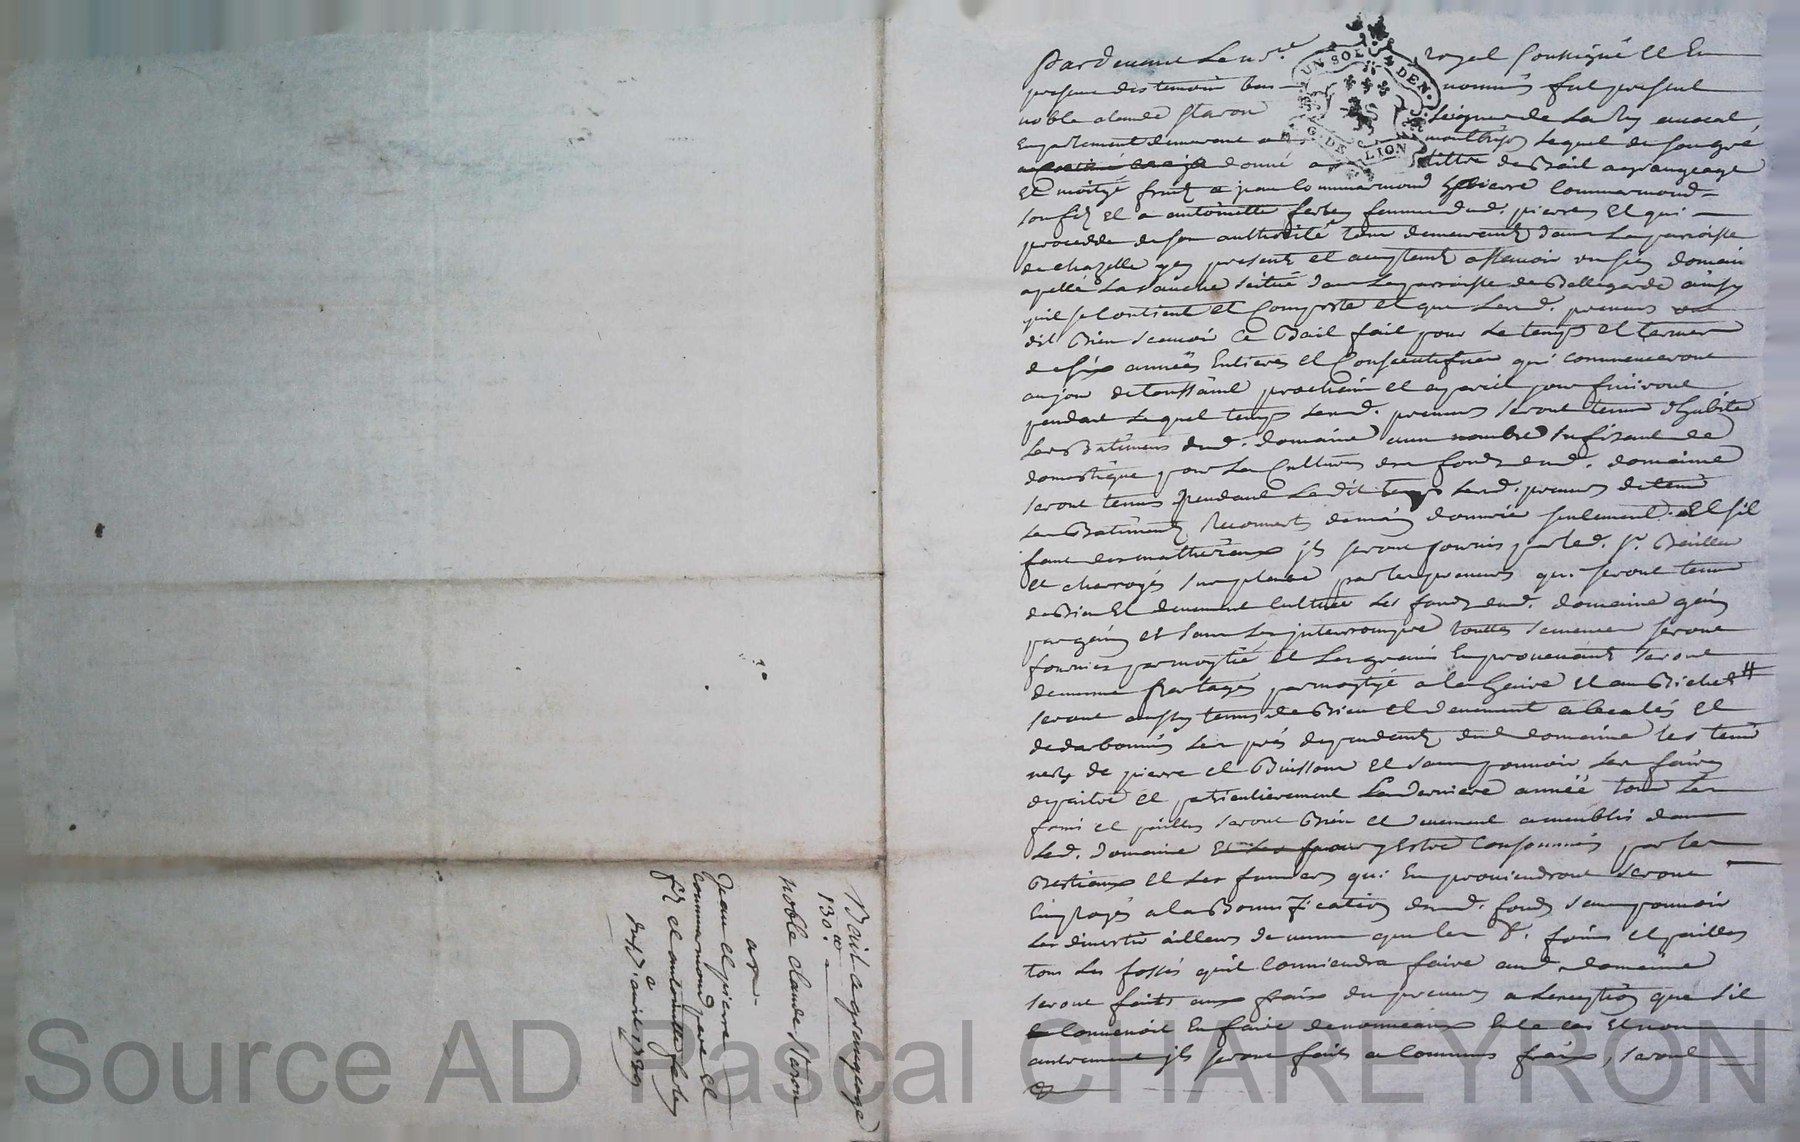 Pardevant le nre royal soussigné et en
presence des temoins bas nommés fut present
noble claude staron seigneur de Larey avocat
en parlement demeurant a montbrison lequel de son gré
donné a tiltre de Bail a grangeage
et moitié fruits a jean Commarmond pierre Commarmond
son fils et a antoinette ferley femme dud. pierre et qui
procedde de son authorité tous demeurants dans la parroisse
de chazelle ycy presents et acceptants assavoir un sien domaine
apellé la situé dans la parroisse de Bellegarde ainsy
quil se contient et Comporte et que lesd. preneurs ont
dit Bien scavoir Ce Bail fait pour le temps et terme
de six années Entieres et Consecutives qui commenceront
au jour de toussaint prochain et a pareil jour finiront
pendant lequel temps lesd. preneurs seront tenus d'habiter
les Batiments dud. domaine avec nombre sufisant de
domestique pour la Culture des fonds dud. domaine
seront tenus pendant le dit temps lesd. preneurs de tenir
les Batiments recouverts de main d'ouvrié seulement. et s'il
faut des matheriaux ils seront fournis par led. Sr. Bailleur
et charroyés sur place par les preneurs qui seront tenus
de Bien et duement Cultiver les fonds dud. domaine gain
par gain et sans les interrompre touttes semences seront
fournies par moytié et les grains En provenants seront
de meme partagés par moytyé a la Gerbe et au Bichet #
seront aussy tenus de Bien et duement et
dedarbonner les prés dependants dud domaine les tenir
nets de pierre et Buissons et sans pouvoir les faire
depaitre et particulierement La derniere année tous les
foins et pailles seront Bien et duement ameublis dans
led. domaine pour y Estre Consommés par les
Bestiaux et les fumiers qui En proviendront seront
Employés a la Bonnification dud. fonds sans pouvoir
les divertir ailleurs de meme que les d. foins et pailles
tous les fossés qu'il conviendra faire aud. domaine
seront faits aux fraix des preneurs a l'exeption que s'il
Convenoit En faire de nouveaux En ce cas Et non
autrement ils seront faits a Communs fraix, seront
UN SOL 4 DEN.
G. DE LION
Bail a grangeage
130.
noble claude staron
aux
Jean et pierre
commarmond pere et
fils et antoinette ferley
du avril
Source AD Pascal CHAREYRON